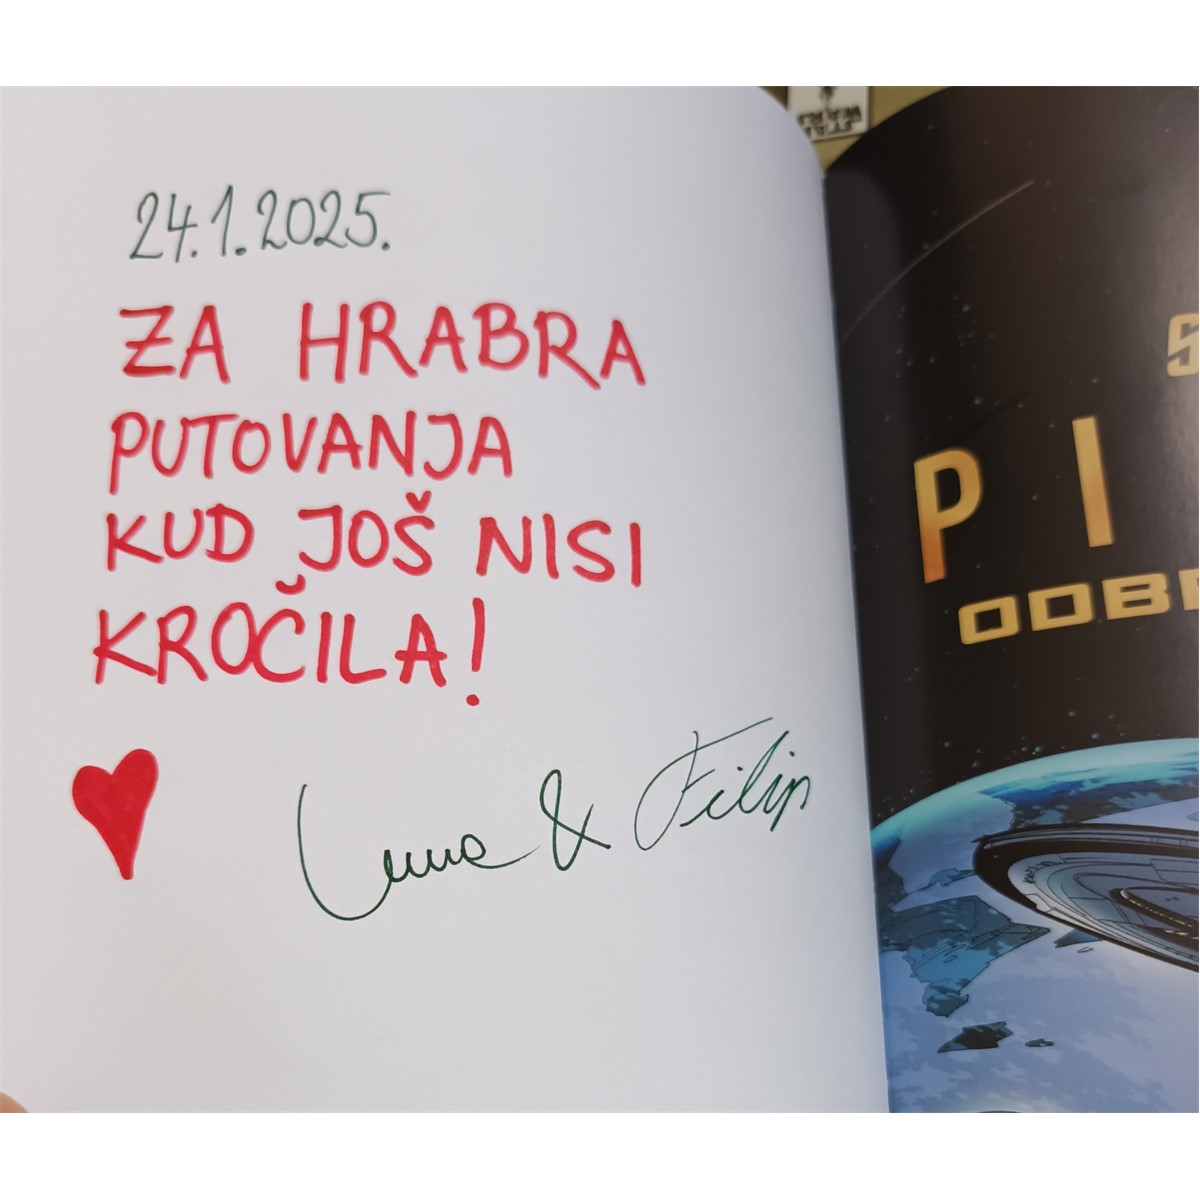 24.1.2025.
ZA HRABRA
PUTOVANJA
KUD JOŠ NISI
KROČILA!
& Filip
S
PI
ODB